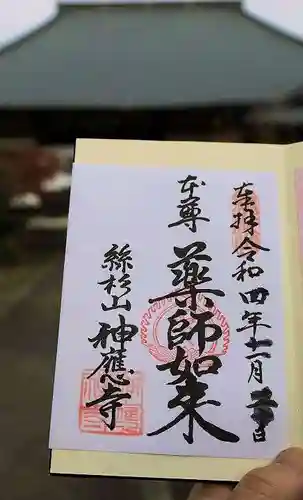 奉拝 令和四年十一月二日
本尊
薬師如来
絲杉山
神應寺